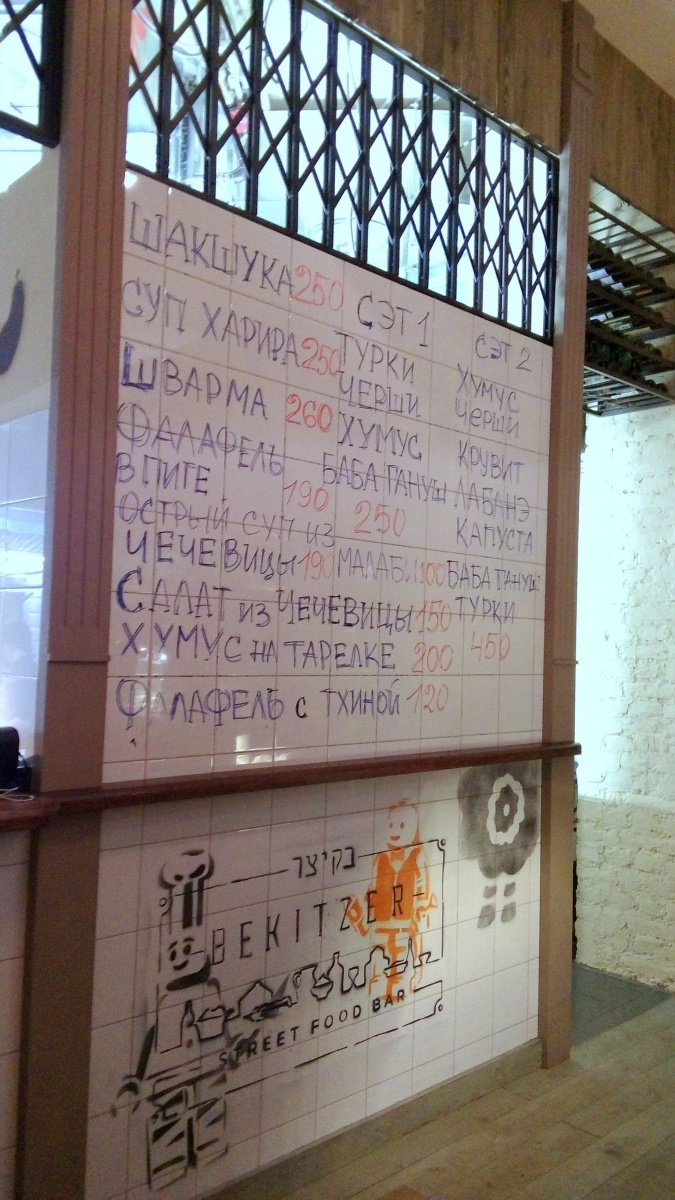 ШАКШУКА 250
СУП ХАРИРА 250
ШВАРМА 260
ФАЛАФЕЛЬ
В ПИТЕ 190
ОСТРЫЙ СУП ИЗ
ЧЕЧЕВИЦЫ 190
САЛАТ ИЗ ЧЕЧЕВИЦЫ 150
ХУМУС НА ТАРЕЛКЕ 200
ФАЛАФЕЛЬ С ТХИНОЙ 120
СЭТ 1
ТУРКИ
ЧЕРШИ
ХУМУС
БАБА ГАНУШ
250
МАЛАБИ 100
СЭТ 2
ХУМУС
ЧЕРШИ
КРУВИТ
ЛАБАНЭ
КАПУСТА
БАБА ГАНУШ
ТУРКИ
450
בקיצר
BEKITZER
STREET FOOD BAR